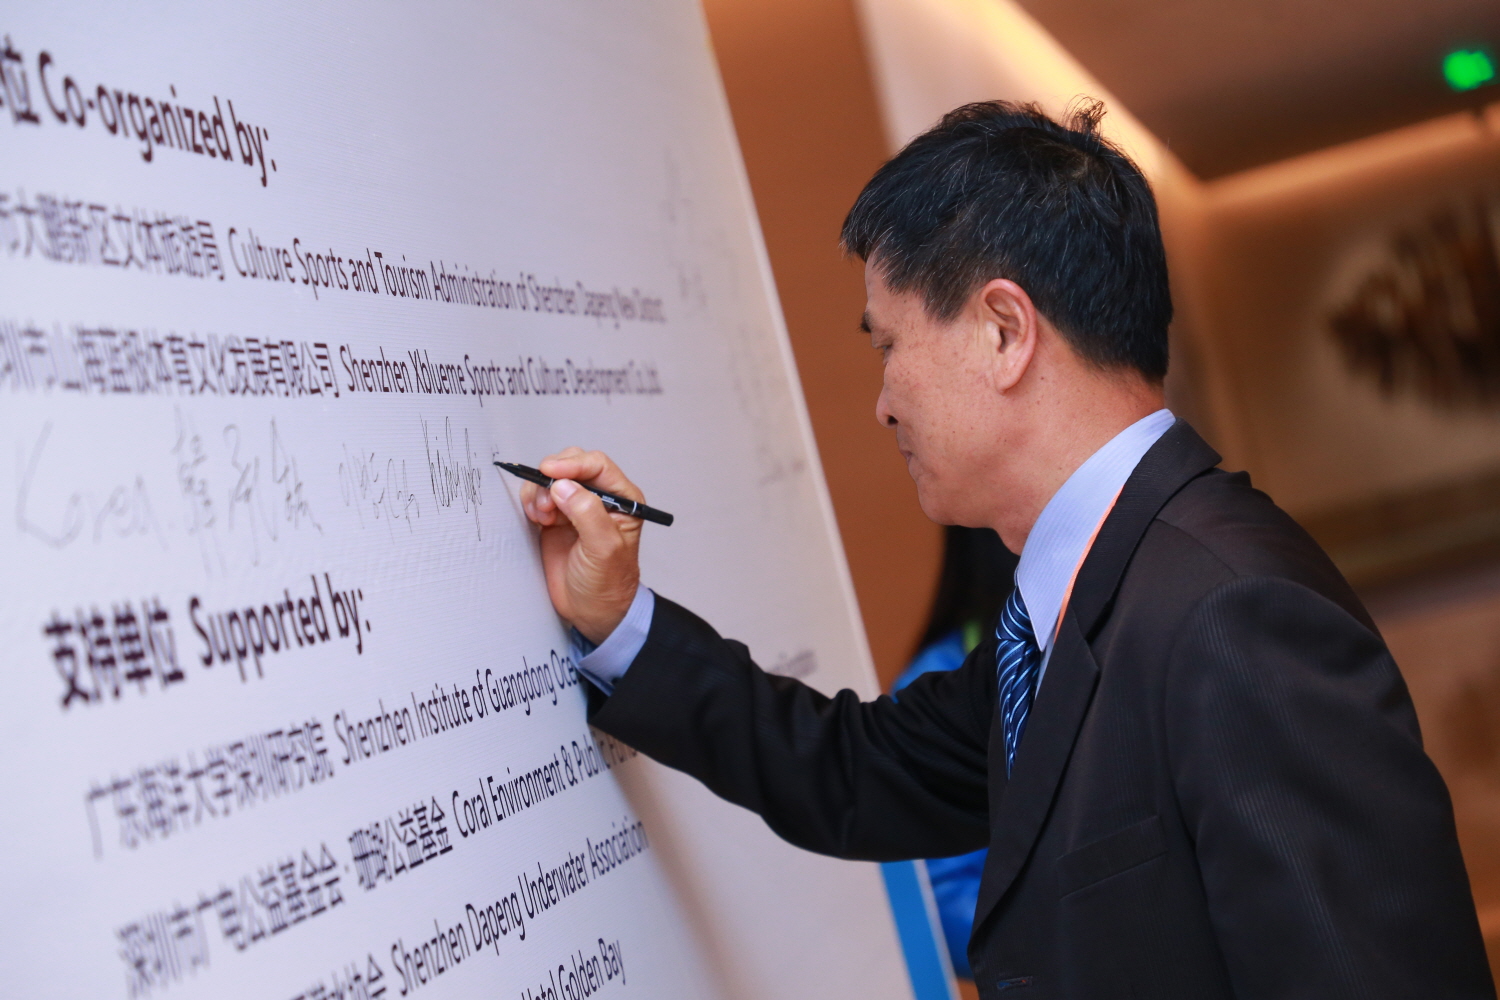 位 Co-organized by:
市大鹏新区文体旅游局 Culture Sports and Tourism Administration of Shenzhen Dapeng New District
圳市山海蓝极体育文化发展有限公司 Shenzhen Xblueme Sports and Culture Development Co.,Ltd.
Korea
支持单位 Supported by:
广东海洋大学深圳研究院 Shenzhen Institute of Guangdong Oce
深圳市广电公益基金会·珊瑚公益基金 Coral Environment & Public Fund
潜水协会 Shenzhen Dapeng Underwater Association
Hotel Golden Bay